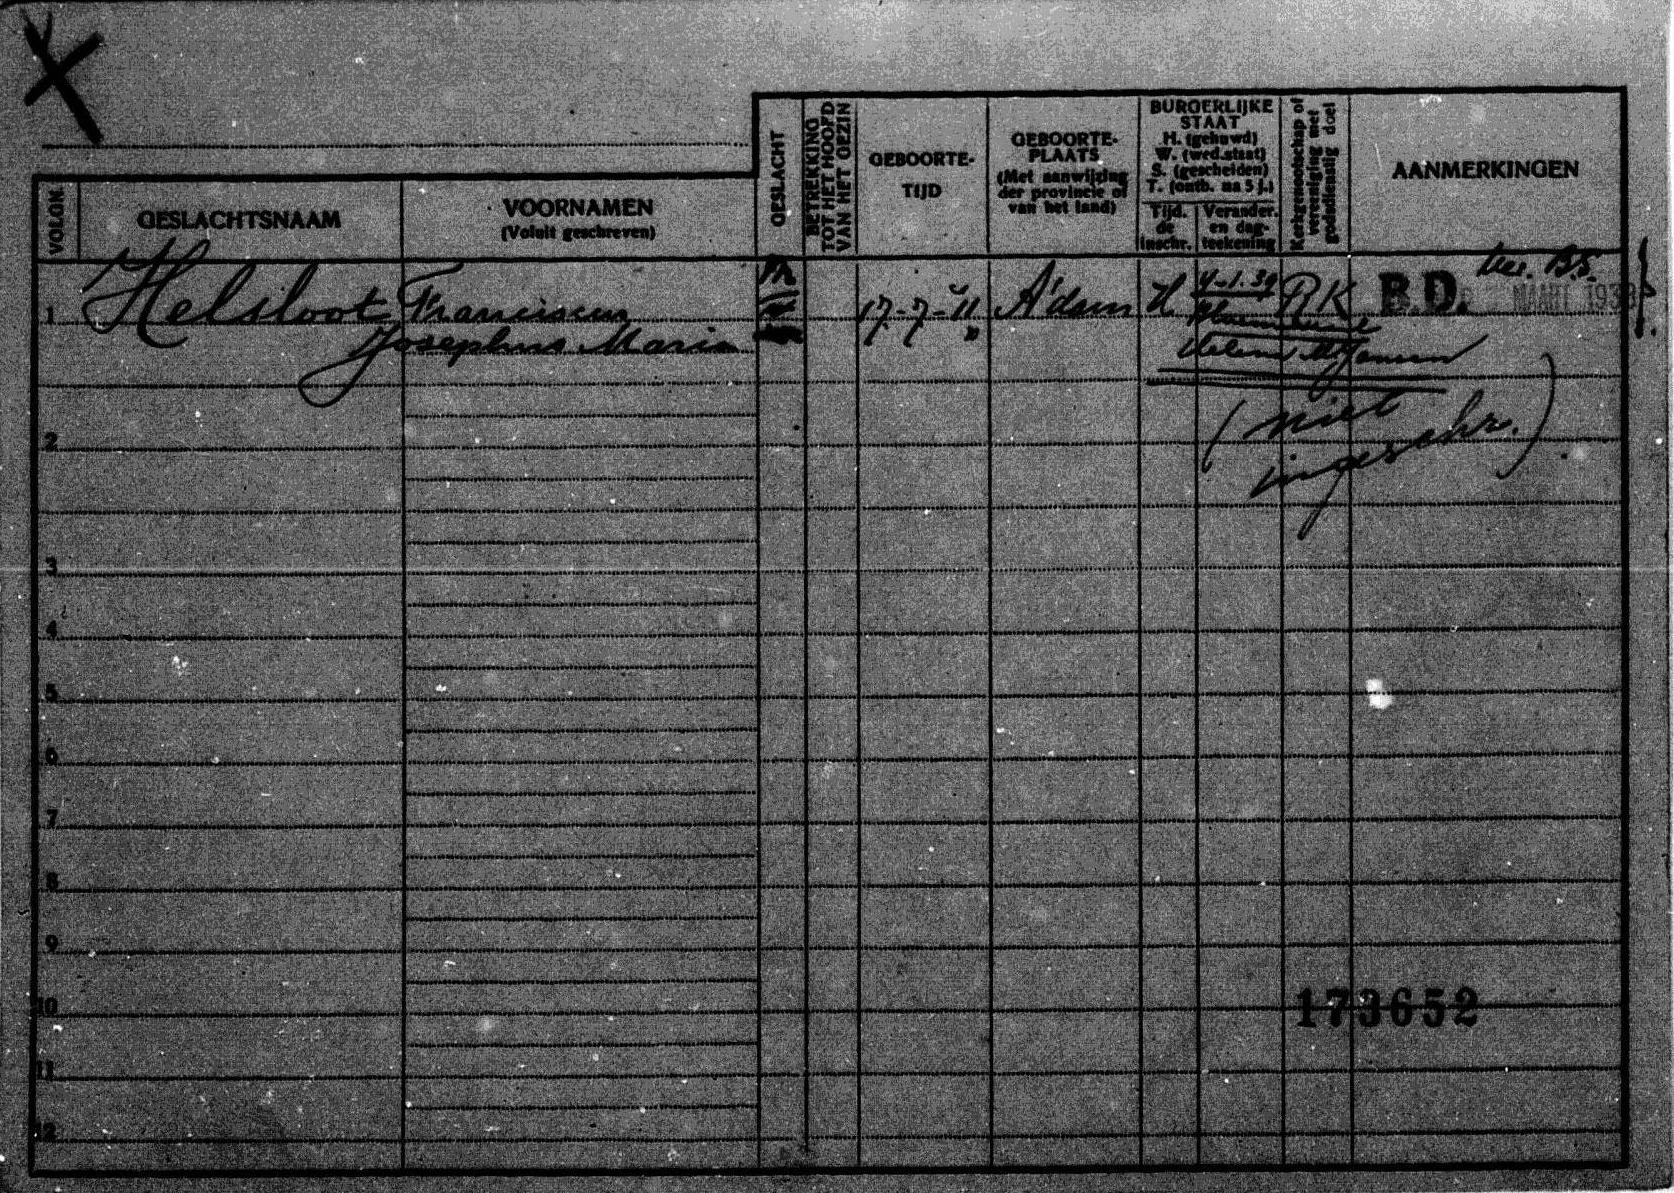 VOLGN.
GESLACHTSNAAM
VOORNAMEN
(Voluit geschreven)
GESLACHT
BETREKKING
TOT HET HOOFD
VAN HET GEZIN
GEBOORTE-
TIJD
GEBOORTE-
PLAATS
(Met aanwijzing
der provincie of
van het land)
BURGERLIJKE
STAAT
H. (gehuwd)
W. (wed.staat)
S. (gescheiden)
T. (ontb. na 5 j.)
Tijd.
de
inschr.
Verander.
en dag-
teekening
Kerkgenootschap of
vereeniging met
godsdienstig doel
AANMERKINGEN
1 Helsloot Franciscus 17-7-11 A'dam H 4-1.39 RK B.D. MAART 1938
Josephus Maria
(niet
ingeschr.)
2
3
4
5
6
7
8
9
10
173652
11
12